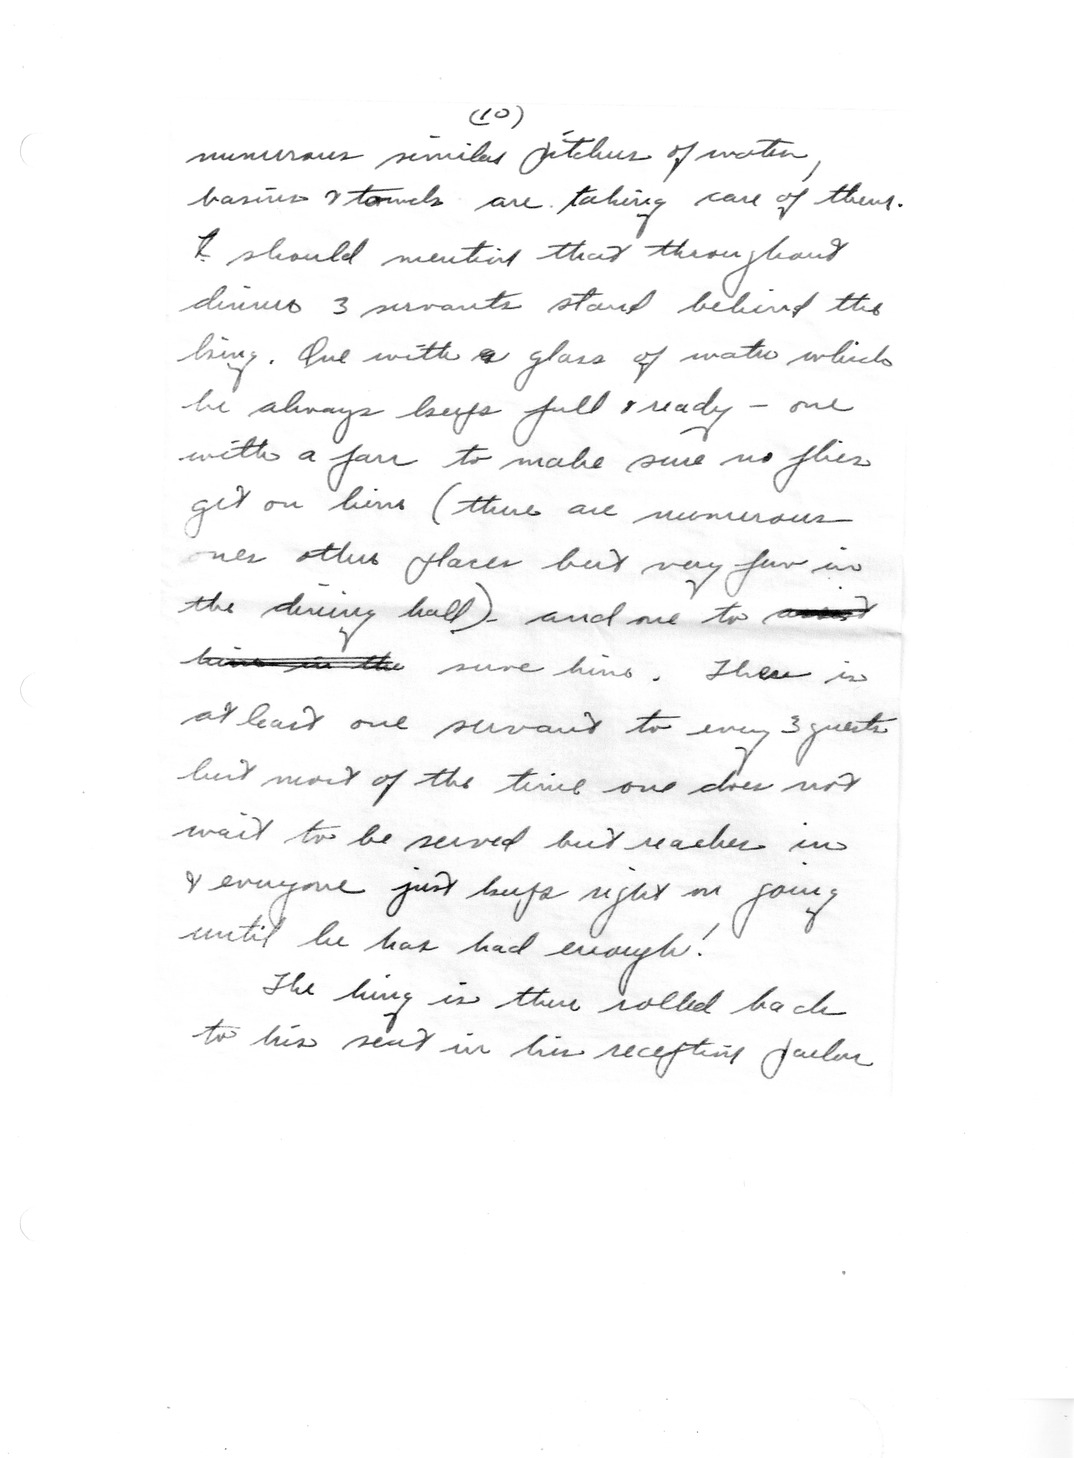 (10)
numerous similar pitchers of water,
basins & towels are taking care of them.
I should mention that throughout
dinner 3 servants stand behind the
king. One with a glass of water which
he always keeps full & ready – one
with a fan to make sure no flies
get on him (there are numerous
ones other places but very few in
the dining hall) – and one to assist
him in the serve him. There is
at least one servant to every 3 guests
but most of the time one does not
wait to be served but reaches in
& everyone just keeps right on going
until he has had enough!
The king is then rolled back
to his seat in his reception parlor